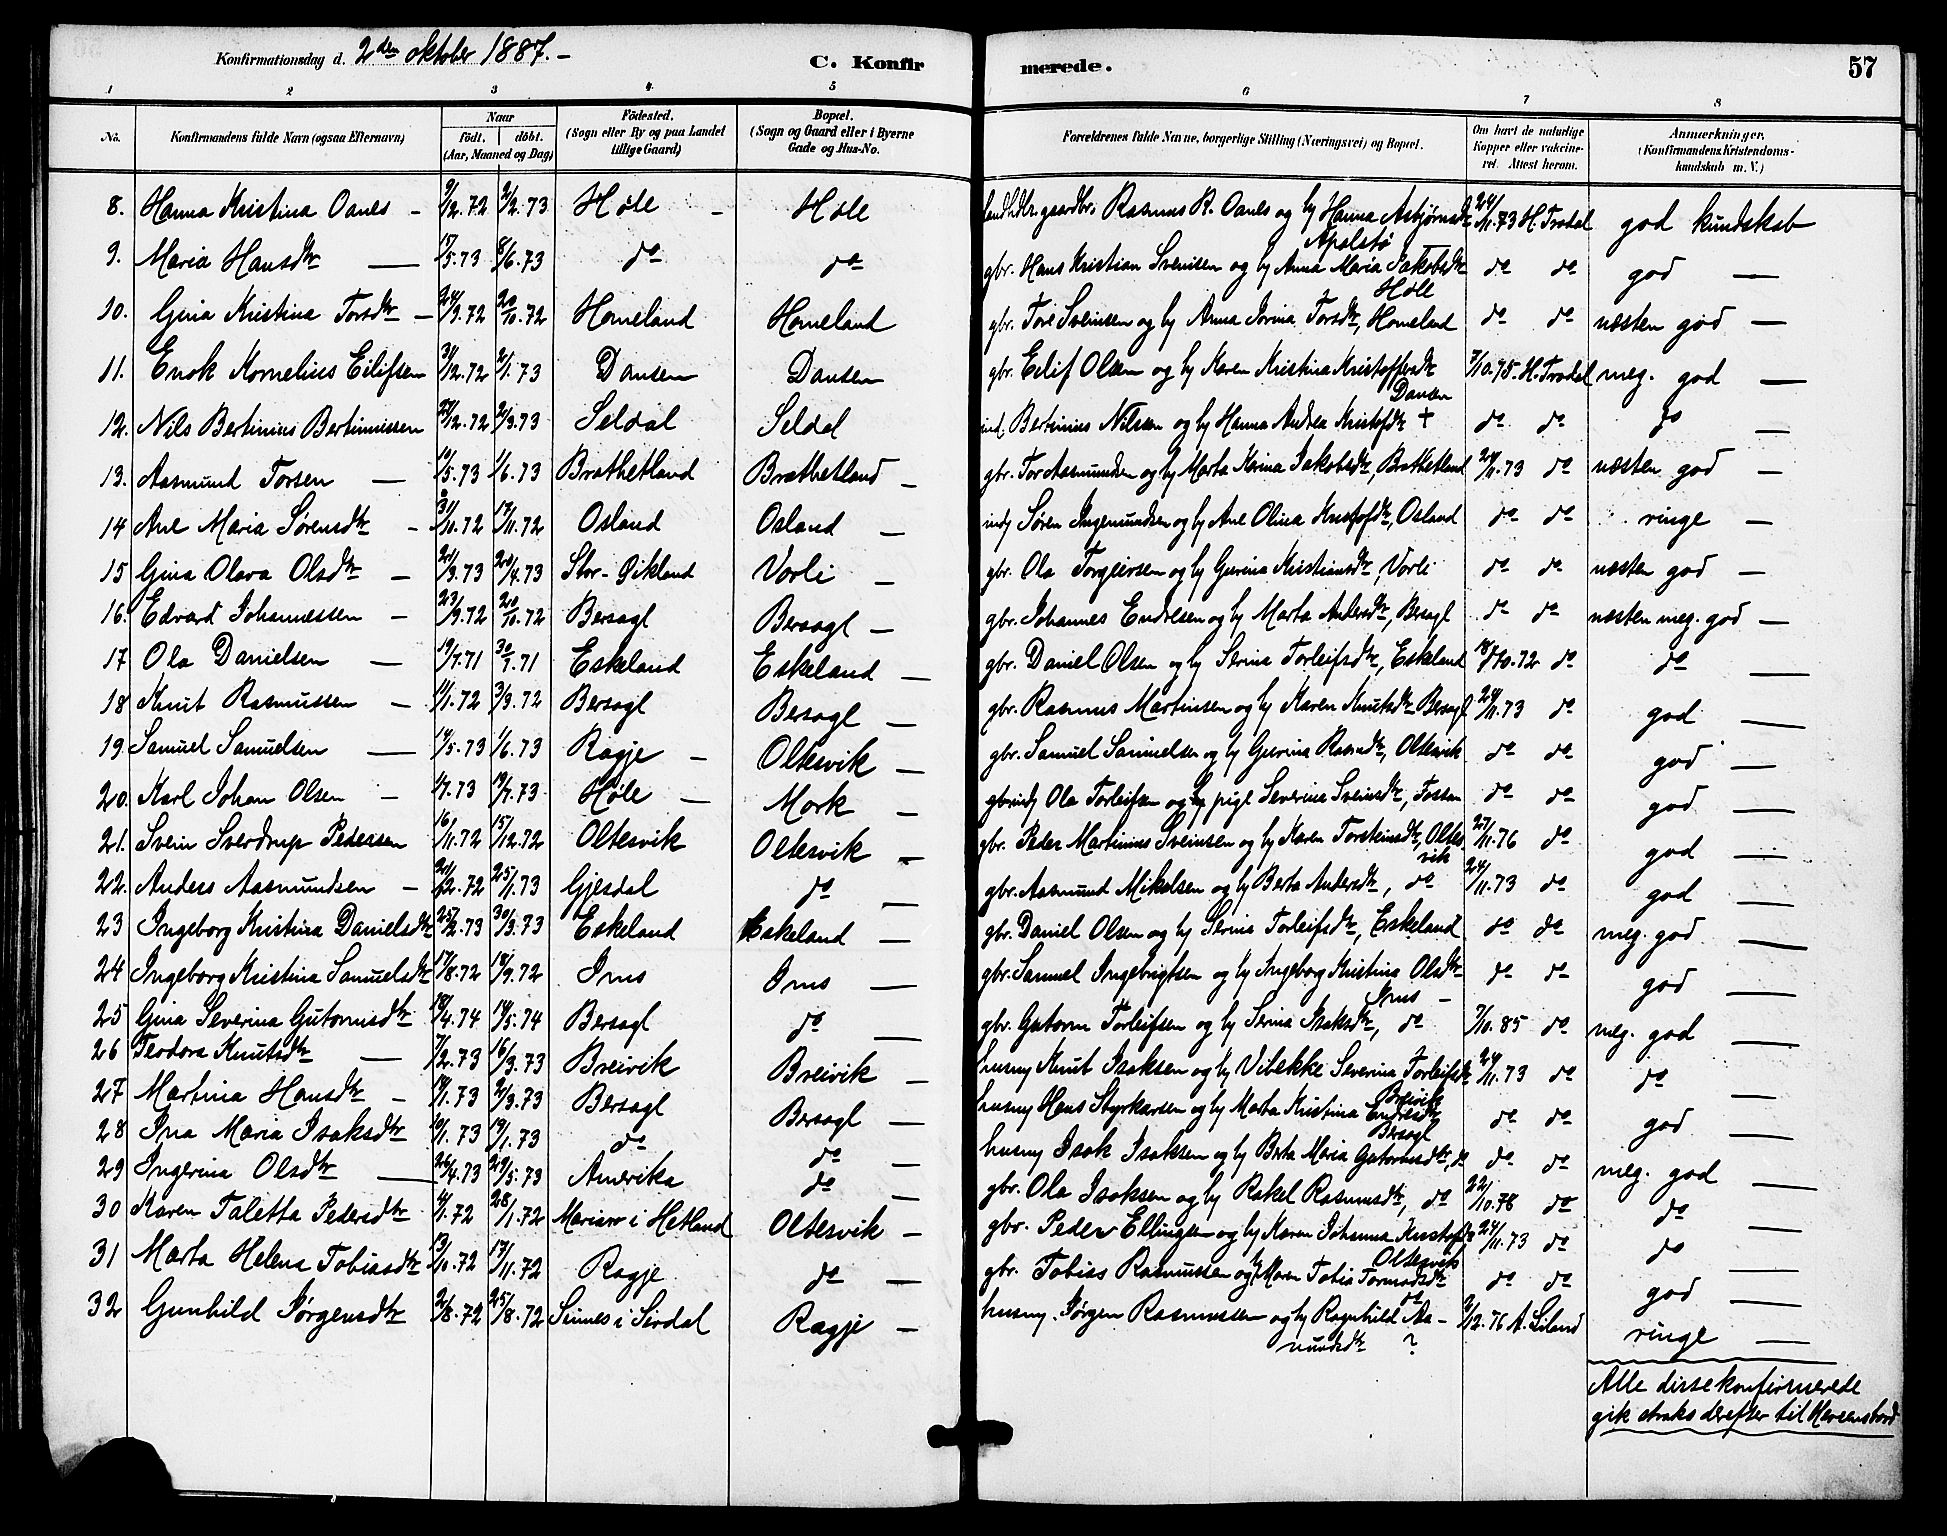 Konfirmationsdag d. 2den oktober 1887. –
C. Konfirmerede.
57
1 2 3 4 5 6 7 8
No. Konfirmandens fulde Navn (ogsaa Efternavn) Naar födt. döbt. (Aar, Maaned og Dag) Födested. (Sogn eller By og paa Landet tillige Gaard) Bopæl. (Sogn og Gaard eller i Byerne Gade og Hus-No. Forældrenes fulde Navne, borgerlige Stilling (Næringsvei) og Bopæl. Om havt de naturlige Kopper eller vaccineret. Attest herom. Anmærkninger. (Konfirmandens Kristendomskundskab m. V.)
8. Hanna Kristina Oanes – 9/12.72 2/2.73 Høle – Høle landhdlr. gaardbr. Rasmus R. Oanes og h Hanna Asbjørnsdtr Apalstø 24/11.73 H. Trodal god kundskab
9. Maria Hansdtr — 17/5.73 8/6.73 do do gbr. Hans Kristian Svensen og h Anna Maria Jakobsdtr Høle do do god —
10. Gina Kristina Torsdtr – 24/9.72 20/10.72 Homeland Homeland gbr. Tore Sveinsen og h Anna Jorina Torsdtr, Homeland do do næsten god —
11. Enok Kornelius Eilifsen 31/12.72 2/1.73 Dansen Dansen gbr. Eilif Olsen og h Karen Kristina Kristoffersdtr Dansen 7/10.75. H. Trodal meg. god —
12. Nils Bertinius Bertiniussen 27/12.72 2/3.73 Seldal Seldal ind. Bertinius Nilssen og h Hanna Andrea Kristofsdtr + do do do —
13. Aasmund Torsen — 10/5.73 1/6.73 Brathetland Brathetland – gbr. Tor Aasmundsen og h Marta Karina Jakobsdtr, Brathetland 24/11.73 do næsten god –
14 Ane Maria Sørensdtr – 3/11.72 17/11.72 Osland Osland – indf Søren Ingemundsen og h Ane Olina Kristofsdtr, Osland do do ringe –
15 Gina Olava Olsdtr – 21/3.73 20/4.73 Stor-Øikland Vorli – gbr. Ola Torgeirsen og h Gurina Kristiansdtr, Vorli do do næsten god –
16. Edvard Johannessen – 23/9.72 20/10.72 Bersagl Bersagl – gbr. Johannes Endresen og h Marta Andersdtr, Bersagl do do næsten meg. god –
17 Ola Danielsen — 19/7.71 30/7.71 Eskeland Eskeland — gbr. Daniel Olsen og h Serina Torleifsdtr, Eskeland 18/10.72 do do —
18 Knut Rasmussen – 11/1.72 3/3.72 Bersagl Bersagl – gbr. Rasmus Martinsen og h Karen Knutsdtr Bersagl 24/11.73 do god —
19. Samuel Samuelsen — 14/5.73 1/6.73 Ragje – Oltesvik – gbr. Samuel Samuelsen og h Gurina Rasmdtr, Oltesvik do do god —
20. Karl Johan Olsen – 4/7.73 19/7.73 Høle — Mork – gbr. indf Ola Torleifsen og pige Severina Sveinsdtr, Tossen do do god —
21. Svein Sverdrup Pedersen 16/11.72 15/12.72 Oltesvik Oltesvik – gbr. Peder Martinius Sveinsen og h Karen Torsteinsdtr, Oltesvik 27/11.76 do god —
22. Anders Aasmundsen – 21/12.72 25/1.73 Gjesdal do — gbr. Aasmund Mikalsen og h Berta Andersdtr, do 24/11.73 do god —
23 Ingeborg Kristina Danielsdtr 25/2.73 30/3.73 Eskeland Eskeland – gbr. Daniel Olsen og h Serina Torleifsdtr, Eskeland do do meg. god —
24 Ingeborg Kristina Samuelsdtr 17/8.72 18/9.72 Ims Ims — gbr. Samuel Ingebrigtsen og h Ingeborg Kristina Olsdtr Ims – do do god —
25 Gina Severina Gutormsdtr 18/4.74 14/5.74 Bersagl do — gbr. Gutorm Torleifsen og h Serina Isaksdtr, do 7/10.85 do meg. god —
26 Teodora Knutsdtr — 7/2.73 16/3.73 Breivik Breivik – husm Knut Isaksen og h Vibekke Severina Torleifsdtr Breivik 24/11.73 do do —
27 Martina Hansdtr – 19/1.73 2/3.73 Bersagl Bersagl – husm Hans Styrkarsen og h Marta Kristina Endresdtr Bersagl do do god —
28 Ina Maria Isaksdtr 10/1.73 19/1.73 do do – husm Isak Isaksen og h Berta Maria Gutormsdtr, do do do meg. god —
29 Ingerina Olsdtr — 26/4.73 29/5.73 Amerika do – gbr. Ola Isaksen og h Rakel Rasmusdtr, do 22/10.78 do do —
30 Karen Taletta Pedersdtr 4/1.72 28/1.72 i Hetland Oltesvik – gbr. Peder Ellingsen og h Karen Johanna Kristofsdtr Oltesvik 24/11.73 do do —
31 Marta Helena Tobiasdtr 13/10.72 17/11.72 Ragje do — gbr. Tobias Rasmussen og h Maren Tobia Tormodsdtr do do do god —
32 Gunhild Jørgensdtr 2/8.72 25/8.72 Sinnes i Sirdal Ragje – husm. Jørgen Rasmussen og h Ragnhild Aanundsdtr ? 2/12.76 A. Liland ringe —
Alle disse konfirmerede
gik straks derefter til Herrens bord